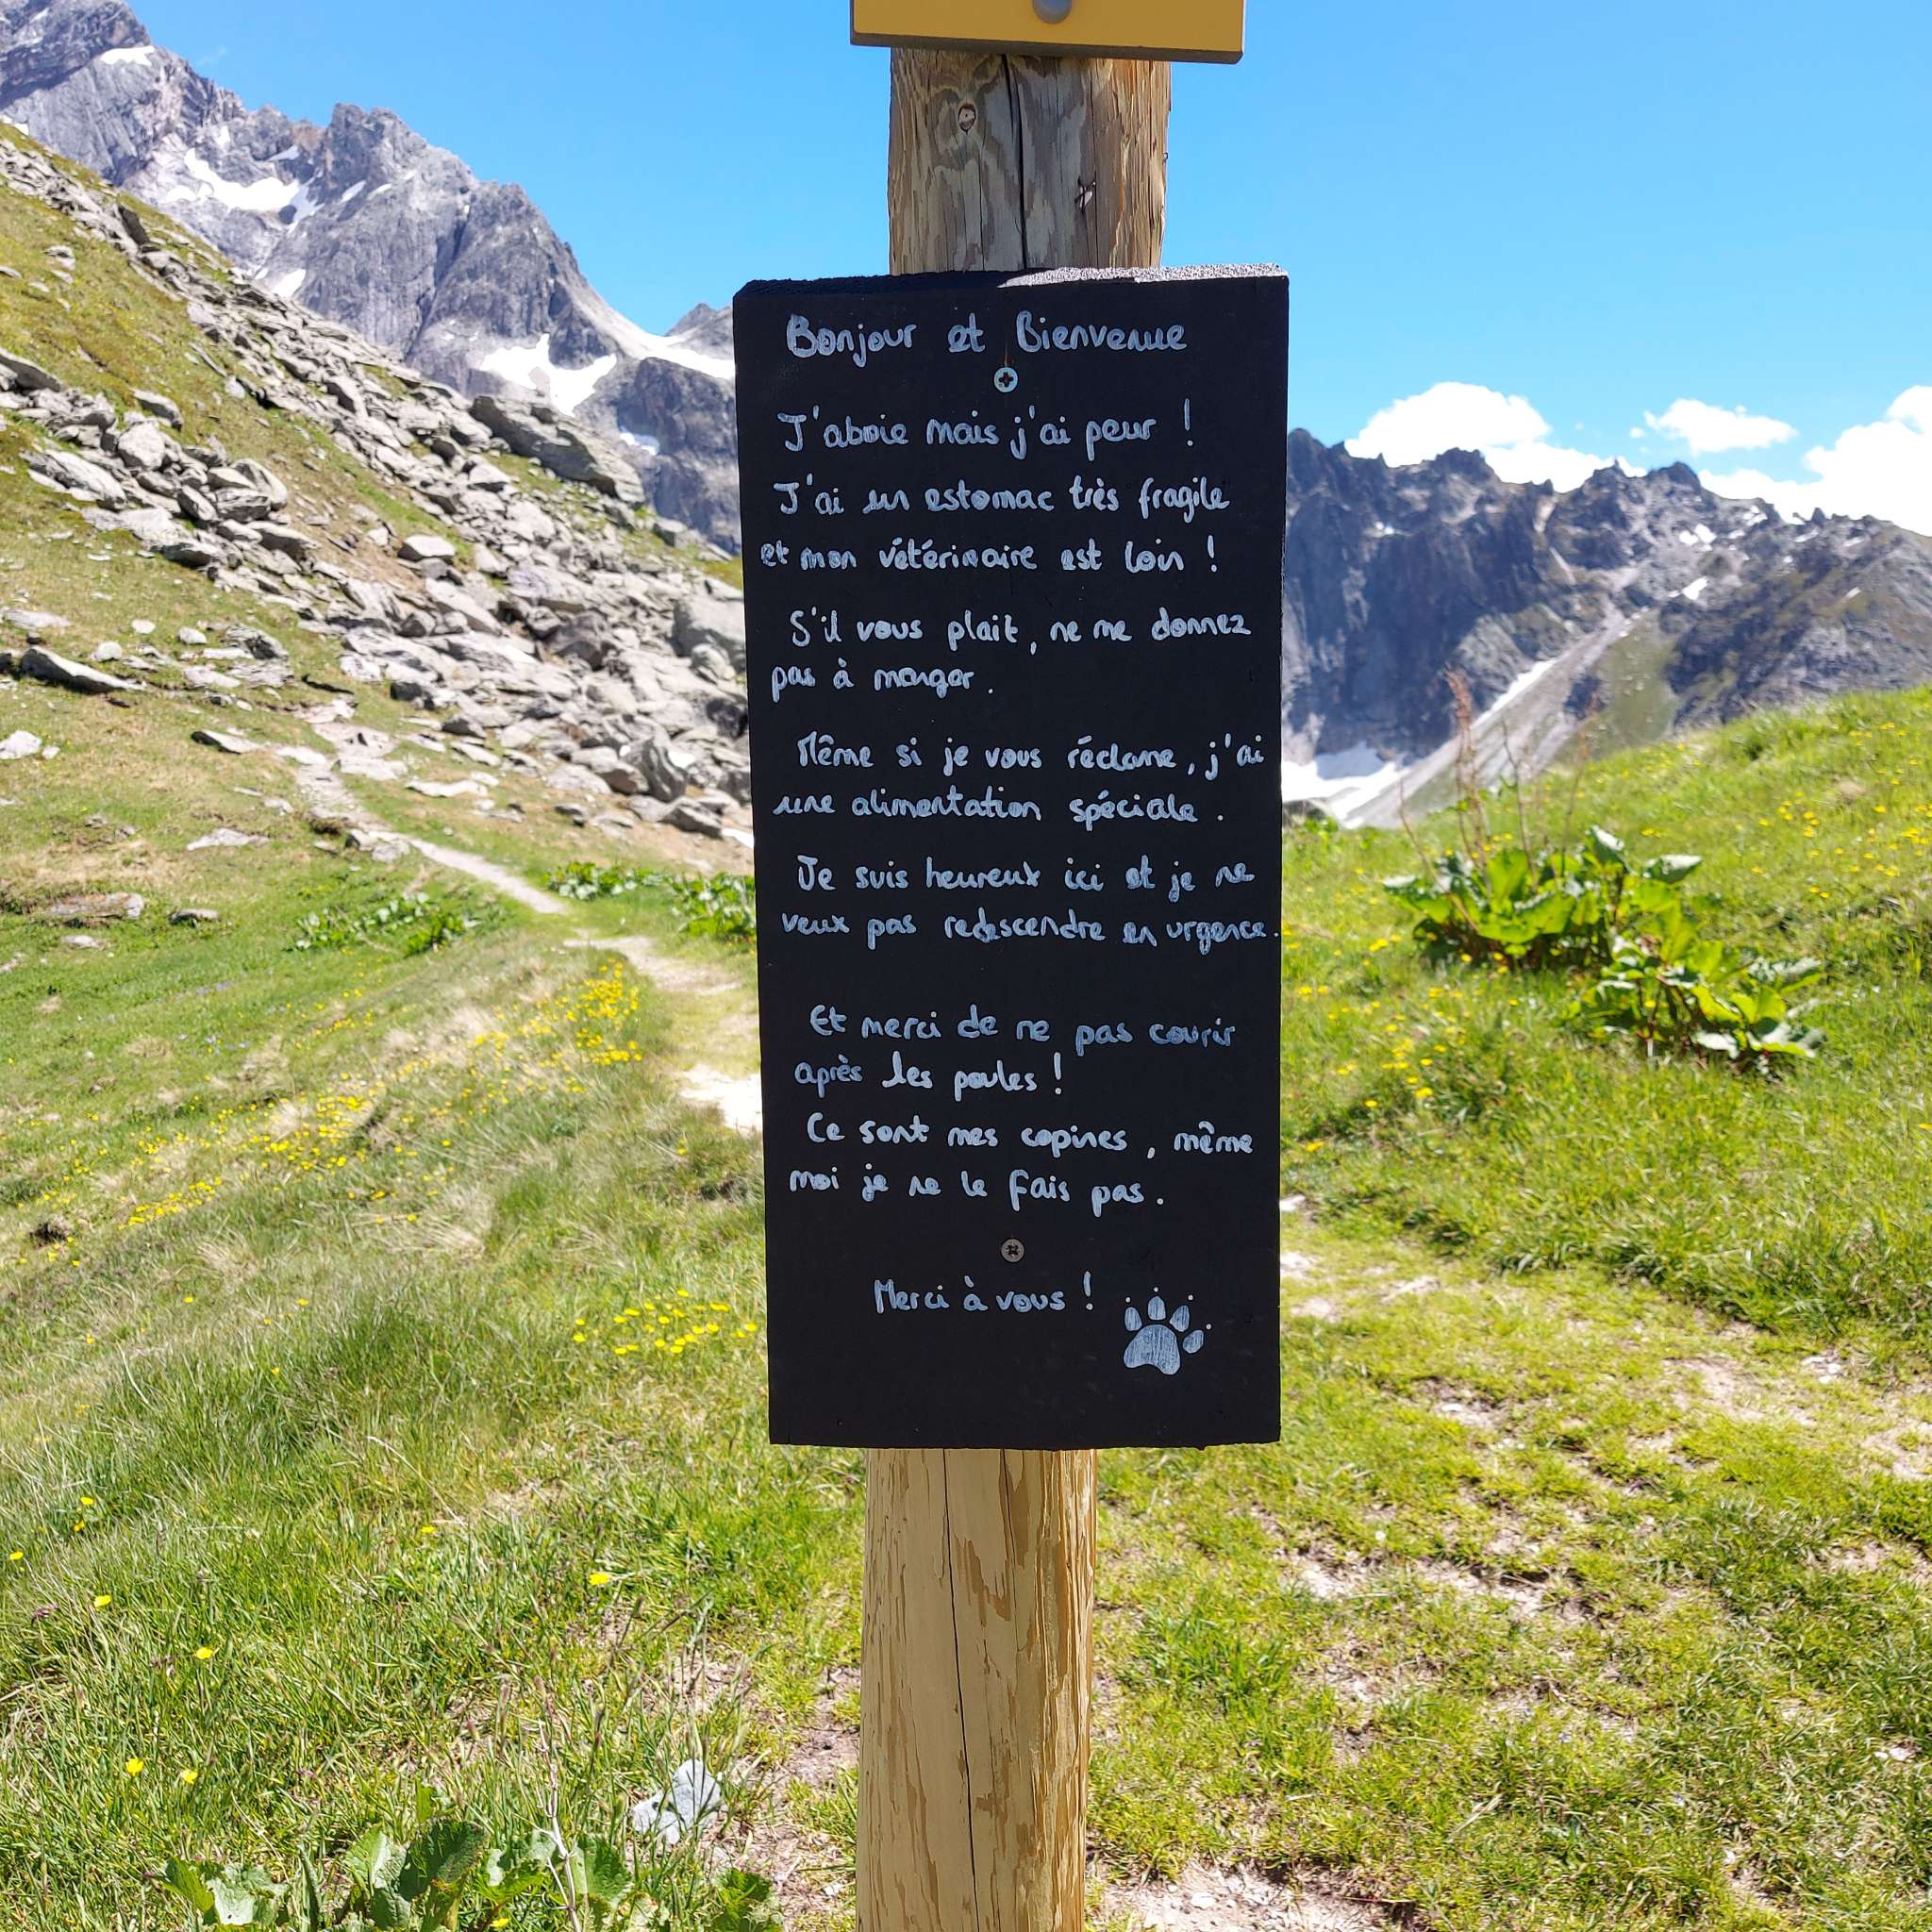 Bonjour et Bienvenue
J'aboie mais j'ai peur !
J'ai un estomac très fragile
et mon vétérinaire est loin !
S'il vous plait, ne me donnez
pas à manger.
Même si je vous réclame, j'ai
une alimentation spéciale.
Je suis heureux ici et je ne
veux pas redescendre en urgence.
Et merci de ne pas courir
après les poules !
Ce sont mes copines, même
moi je ne le fais pas.
Merci à vous !